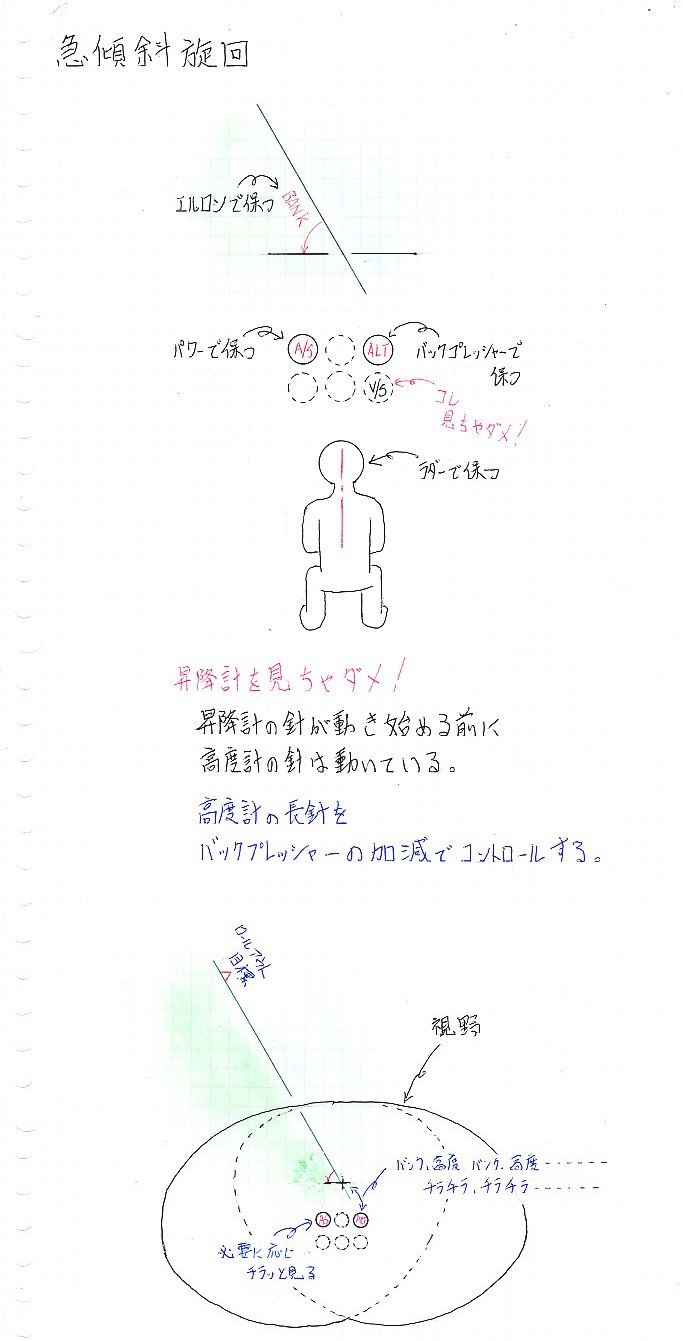 急傾斜旋回
エルロンで保つ
BANK
パワーで保つ
A/S
ALT
バックプレッシャーで
保つ
V/S
コレ
見ちゃダメ!
ラダーで保つ
昇降計を見ちゃダメ!
昇降計の針が動き始める前に
高度計の針は動いている。
高度計の長針を
バックプレッシャーの加減でコントロールする。
ロールアウト
目標
視野
バンク、高度 バンク、高度------
チラチラ、チラチラ------
A/S
ALT
必要に応じ
チラッと見る